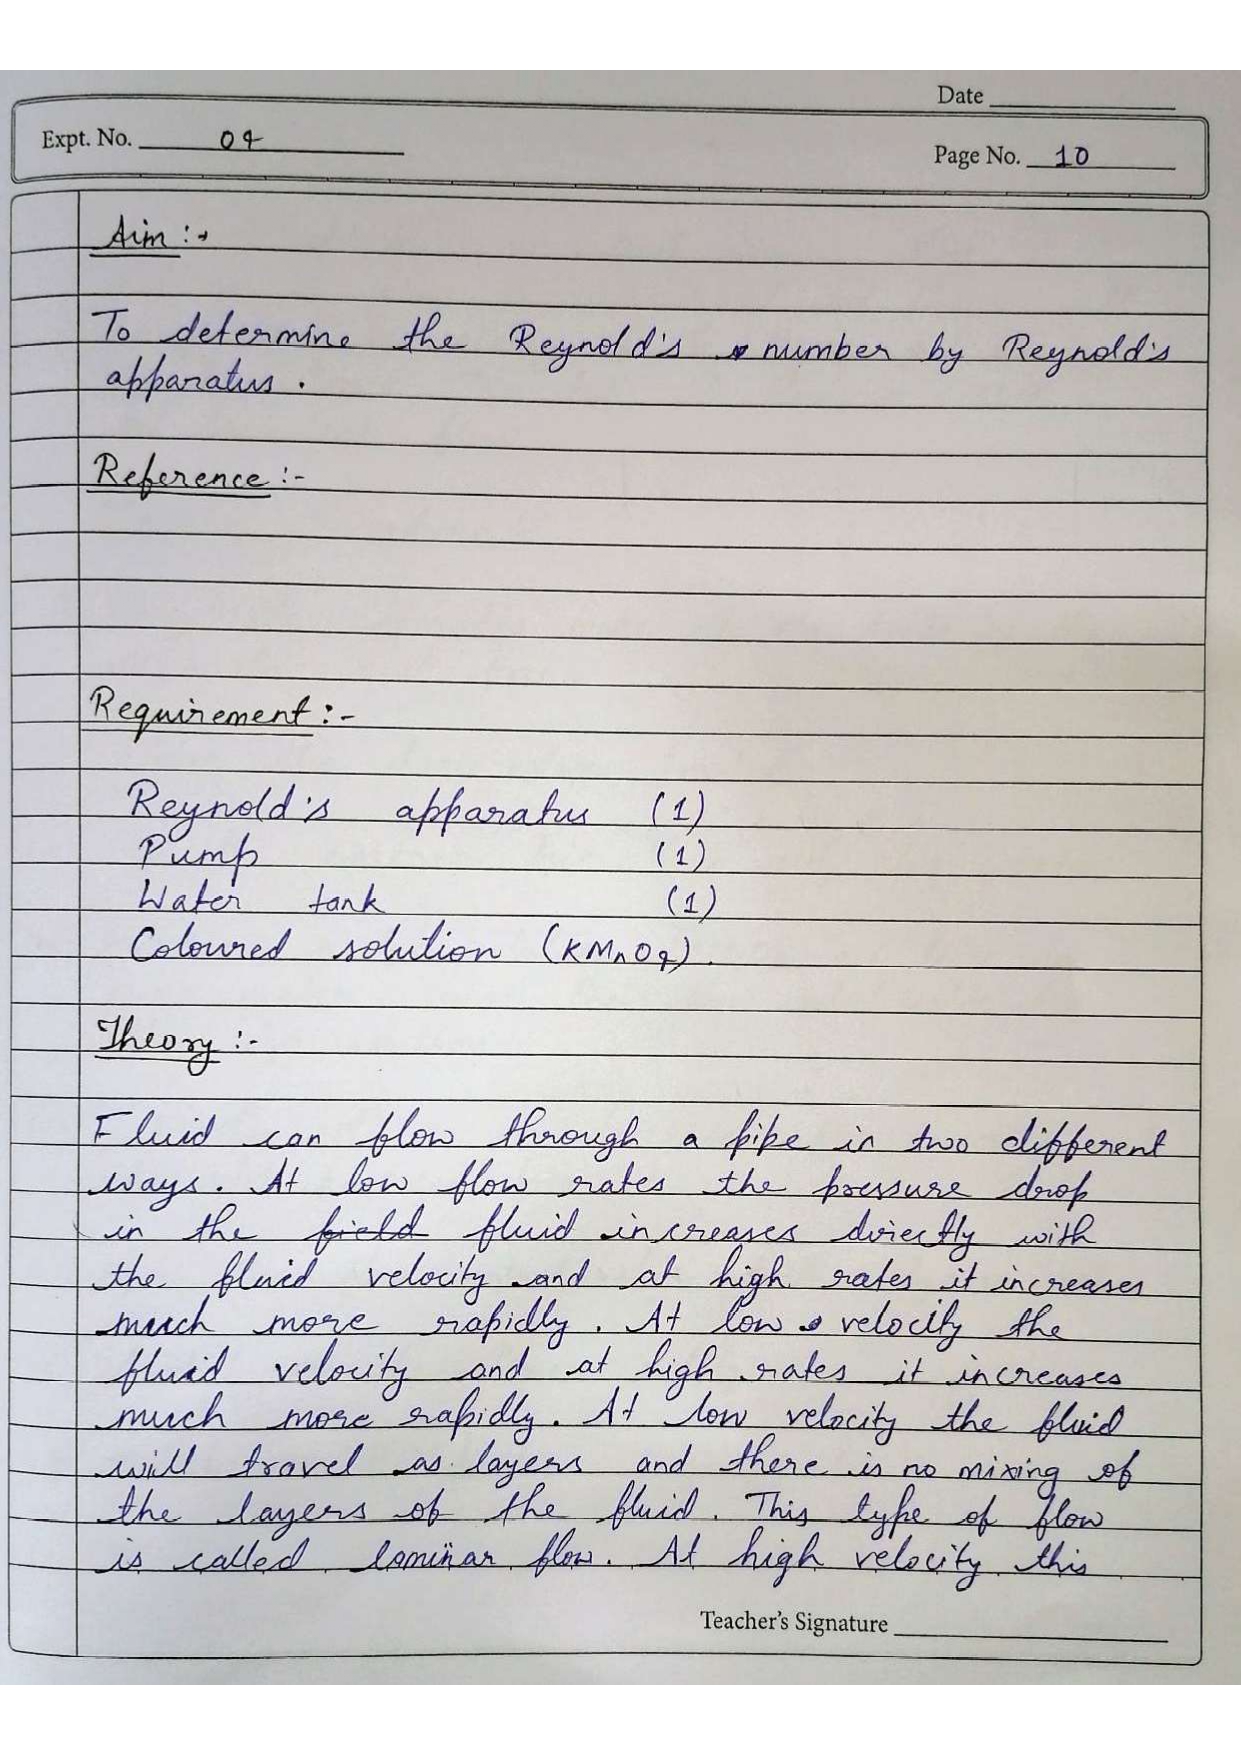 Date
Expt. No. 04
Page No. 10
Aim :→
To determine the Reynold's number by Reynold's
apparatus.
Reference :-
Requirement :-
Reynold's apparatus (1)
Pump (1)
Water tank (1)
Coloured solution (KMnO4).
Theory :-
Fluid can flow through a pipe in two different
ways. At low flow rates the pressure drop
in the field fluid increases directly with
the fluid velocity and at high rates it increases
much more rapidly. At low velocity the
fluid velocity and at high rates it increases
much more rapidly. At low velocity the fluid
will travel as layers and there is no mixing of
the layers of the fluid. This type of flow
is called laminar flow. At high velocity this
Teacher's Signature